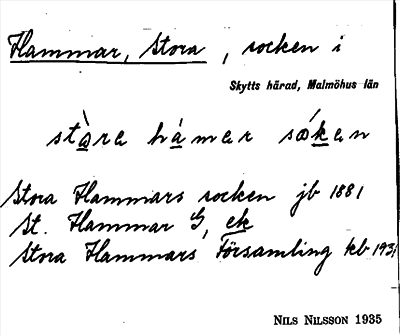 Hammar, Stora, socken i
Skytts härad, Malmöhus län
stàra hàmar sǿkan
Stora Hammars socken jb 1881
St. Hammar G, ek
Stora Hammars Församling kb 1931
NILS NILSSON 1935